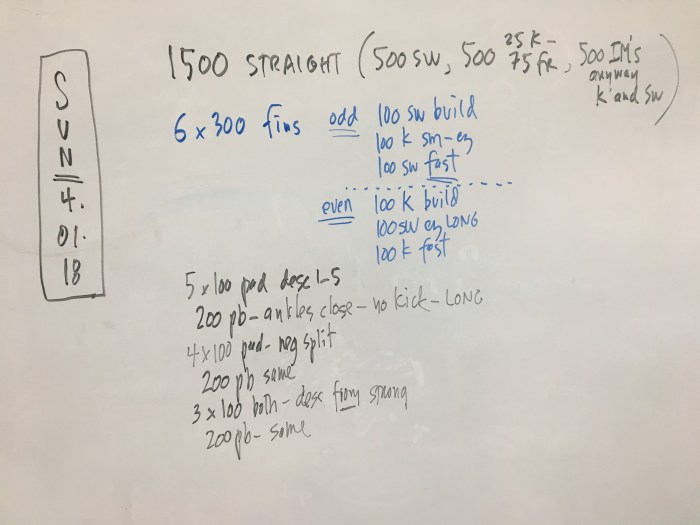 SUN 4.01.18
1500 STRAIGHT (500 SW, 500 25 K - 75 FR, 500 IM's anyway K and SW)
6 x 300 fins odd 100 sw build
100 k sm-ez
100 sw fast
even 100 k build
100 sw ez LONG
100 k fast
5 x 100 pad desc 1-5
200 pb - ankles close - no kick - LONG
4 x 100 pad - neg split
200 pb same
3 x 100 both - desc from strong
200 pb - same